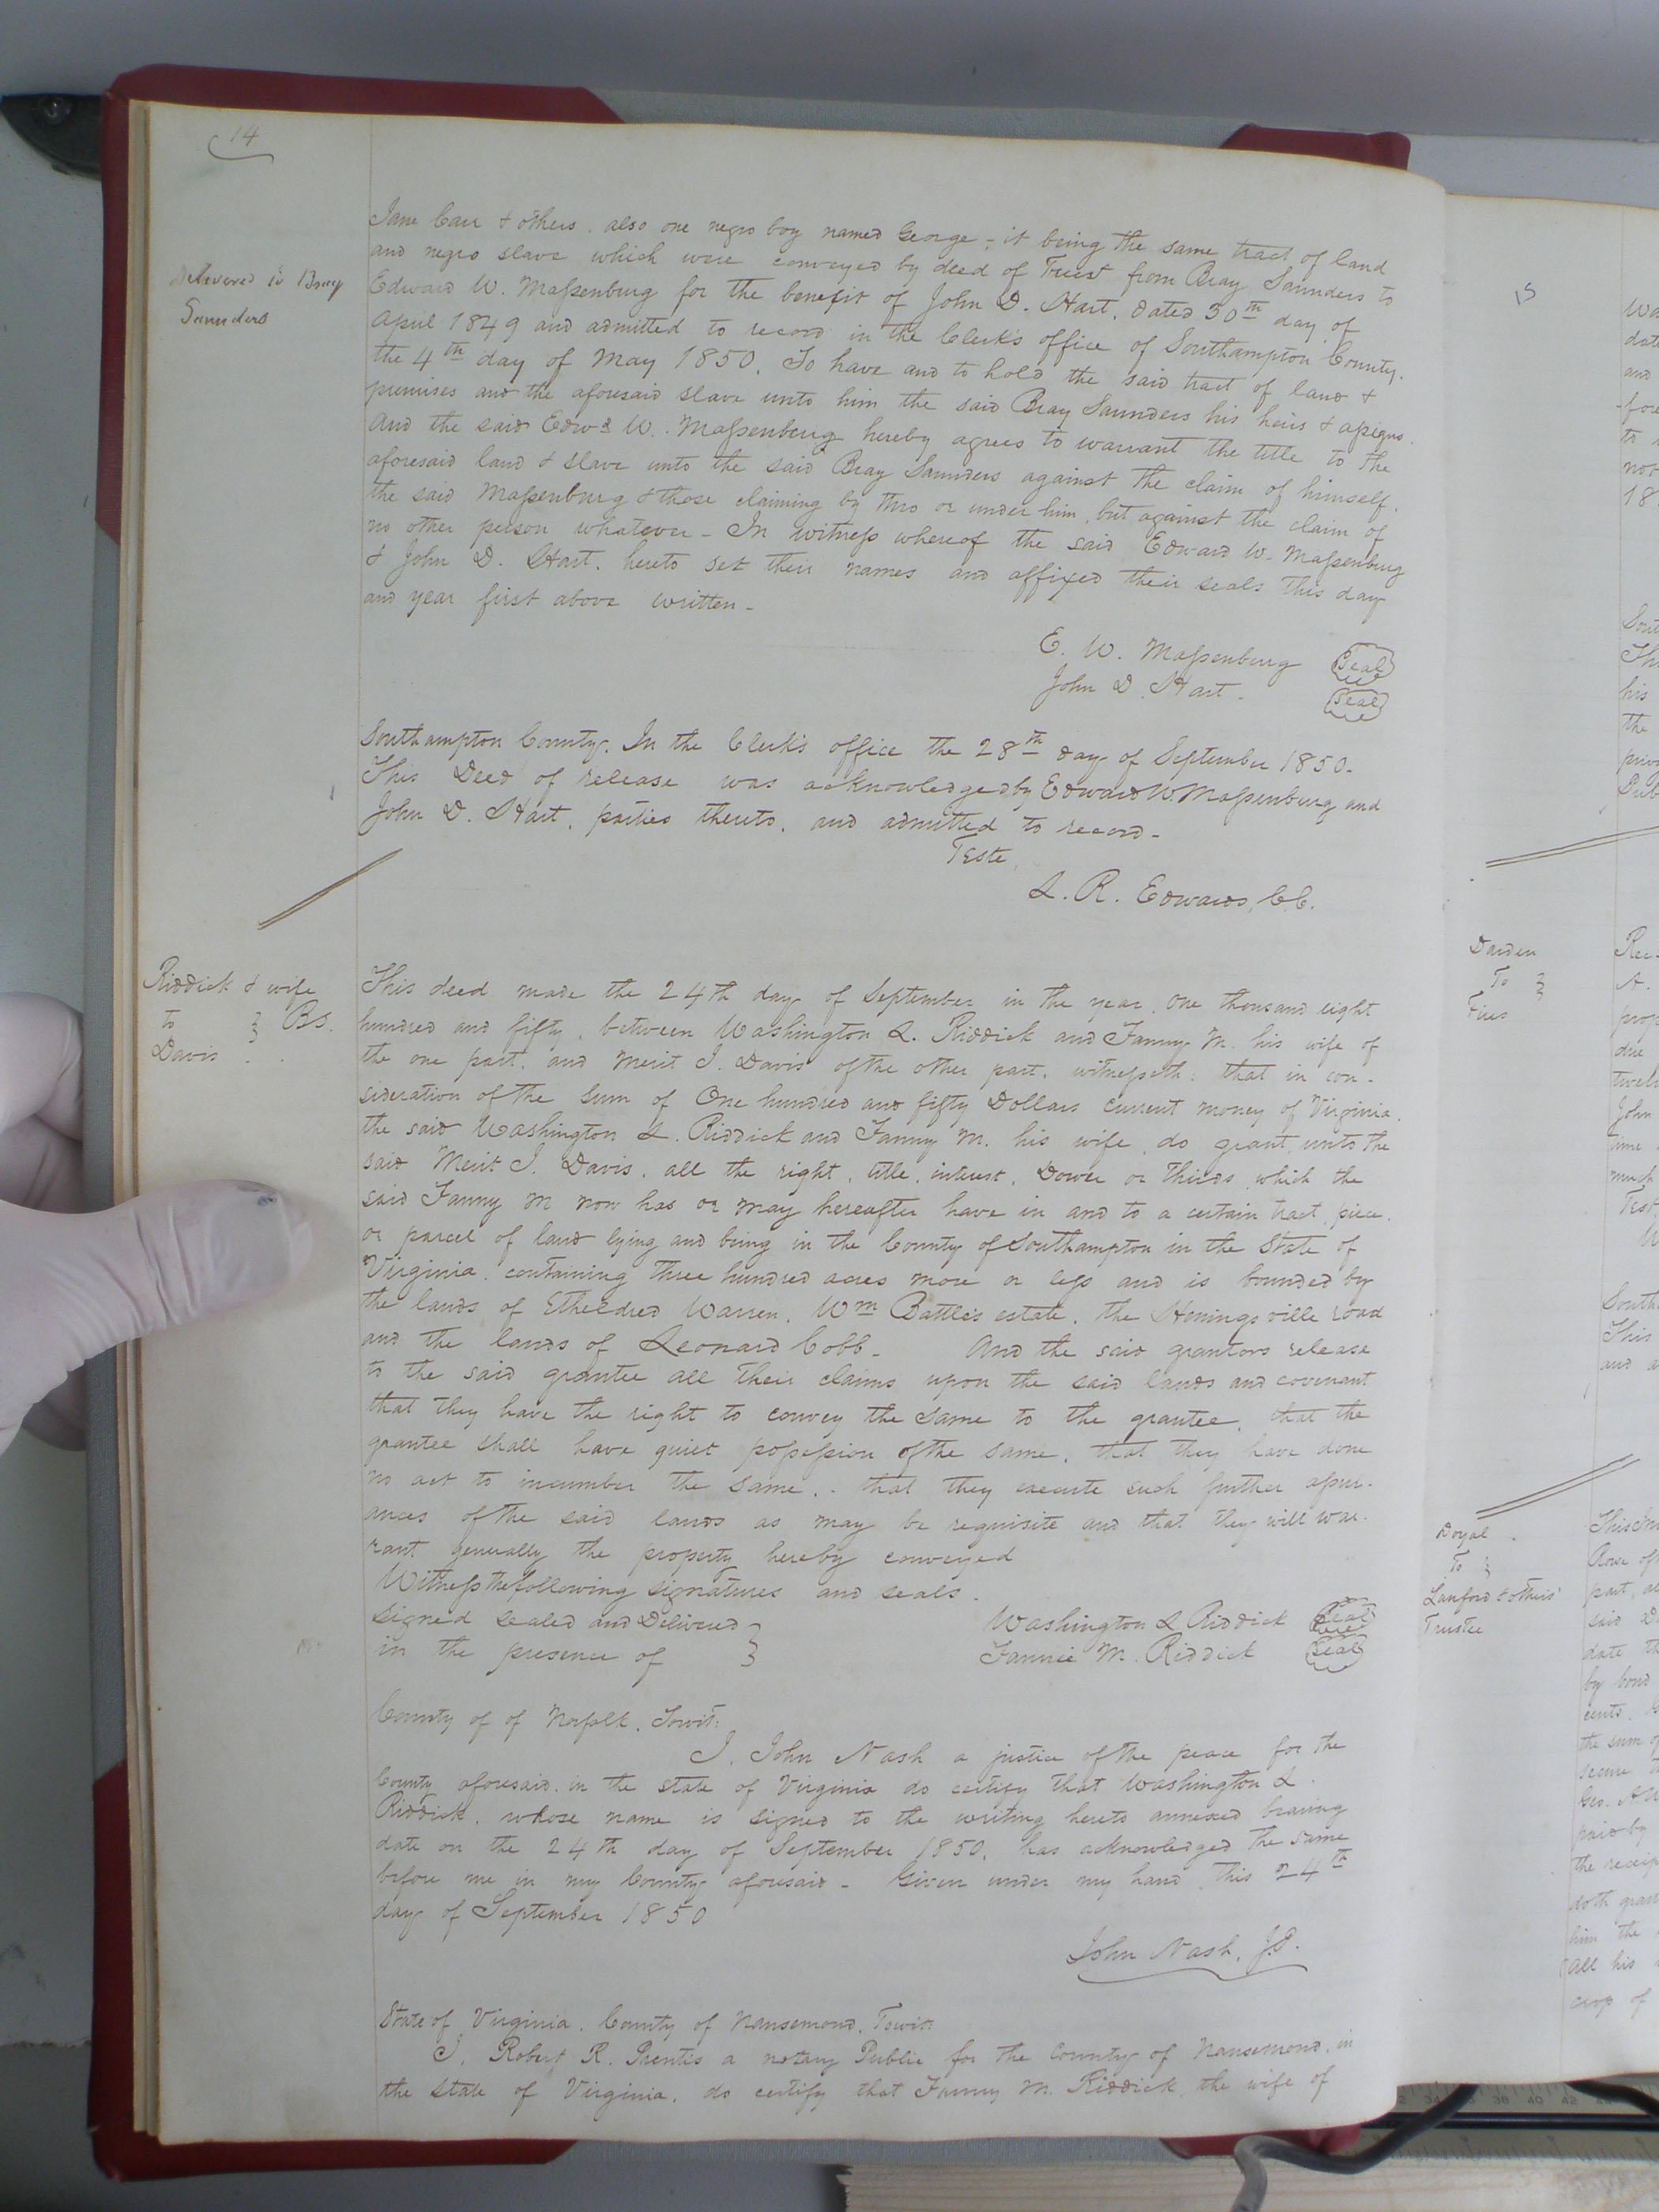 14
Delivered to Bray
Saunders
Jane Carr & others. also one negro boy named George, it being the same tract of land
and negro slave which were conveyed by deed of Trust from Bray Saunders to
Edward W. Massenburg for the benefit of John D. Hart, dated 30th day of
April 1849 and admitted to record in the Clerk's office of Southampton County.
the 4th day of May 1850. To have and to hold the said tract of land &
premises and the aforesaid slave unto him the said Bray Saunders his heirs & assigns.
And the said Edwd W. Massenburg hereby agrees to warrant the title to the
aforesaid land & slave unto the said Bray Saunders against the claim of himself.
the said Massenburg & those claiming by thro or under him, but against the claim of
no other person whatever - In witness whereof the said Edward W. Massenburg
& John D. Hart. hereto set their names and affixed their seals this day
and year first above written -
E. W. Massenburg Seal
John D. Hart. Seal
Southampton County. In the Clerk's office the 28th day of September 1850.
This Deed of release was acknowledged by Edward W. Massenburg and
John D. Hart, parties thereto, and admitted to record -
Teste,
L. R. Edwards, CC.
Riddick & wife
to } BS.
Davis
This deed made the 24th day of September in the year one thousand eight
hundred and fifty, between Washington L. Riddick and Fanny M. his wife of
the one part, and Merit J. Davis of the other part. witnesseth: that in con-
sideration of the sum of One hundred and fifty Dollars current money of Virginia.
the said Washington L. Riddick and Fanny M. his wife, do grant, unto the
said Merit J. Davis, all the right, title, interest, Dower or thirds which the
said Fanny M now has or may hereafter have in and to a certain tract, piece.
or parcel of land lying and being in the County of Southampton in the State of
Virginia. containing three hundred acres more or less and is bounded by
the lands of Etheldred Warren, Wm Battle's estate, the Heningsville road
and the lands of Leonard Cobb - And the said grantors release
to the said grantee all their claims upon the said lands and covenant
that they have the right to convey the same to the grantee, that the
grantee shall have quiet possession of the same, that they have done
no act to incumber the same, - that they execute such further assur-
ances of the said lands as may be requisite and that they will war-
rant generally the property hereby conveyed
Witness the following signatures and seals.
Signed sealed and Delivered } Washington L Riddick Seal
in the presence of } Fannie M. Riddick Seal
County of of Norfolk, Towit:
I, John Nash a justice of the peace for the
County aforesaid, in the state of Virginia do certify that Washington L.
Riddick, whose name is signed to the writing hereto annexed bearing
date on the 24th day of September 1850, has acknowledged the same
before me in my County aforesaid - Given under my hand this 24th
day of September 1850
John Nash, J.P.
State of Virginia. County of Nansemond, Towit:
I, Robert R. Prentis a notary Public for the County of Nansemond, in
the State of Virginia, do certify that Fanny M. Riddick, the wife of
15
Darden
To }
Fires
Doyal
To }
Lanford & others
Trustee
date
and
to
not
18
his
the
A.
due
John
time
much
This
and a
part, a
said
date th
by bond
cents.
the sum of
secure
paid by
the receip
doth gran
him the
all his
crop of